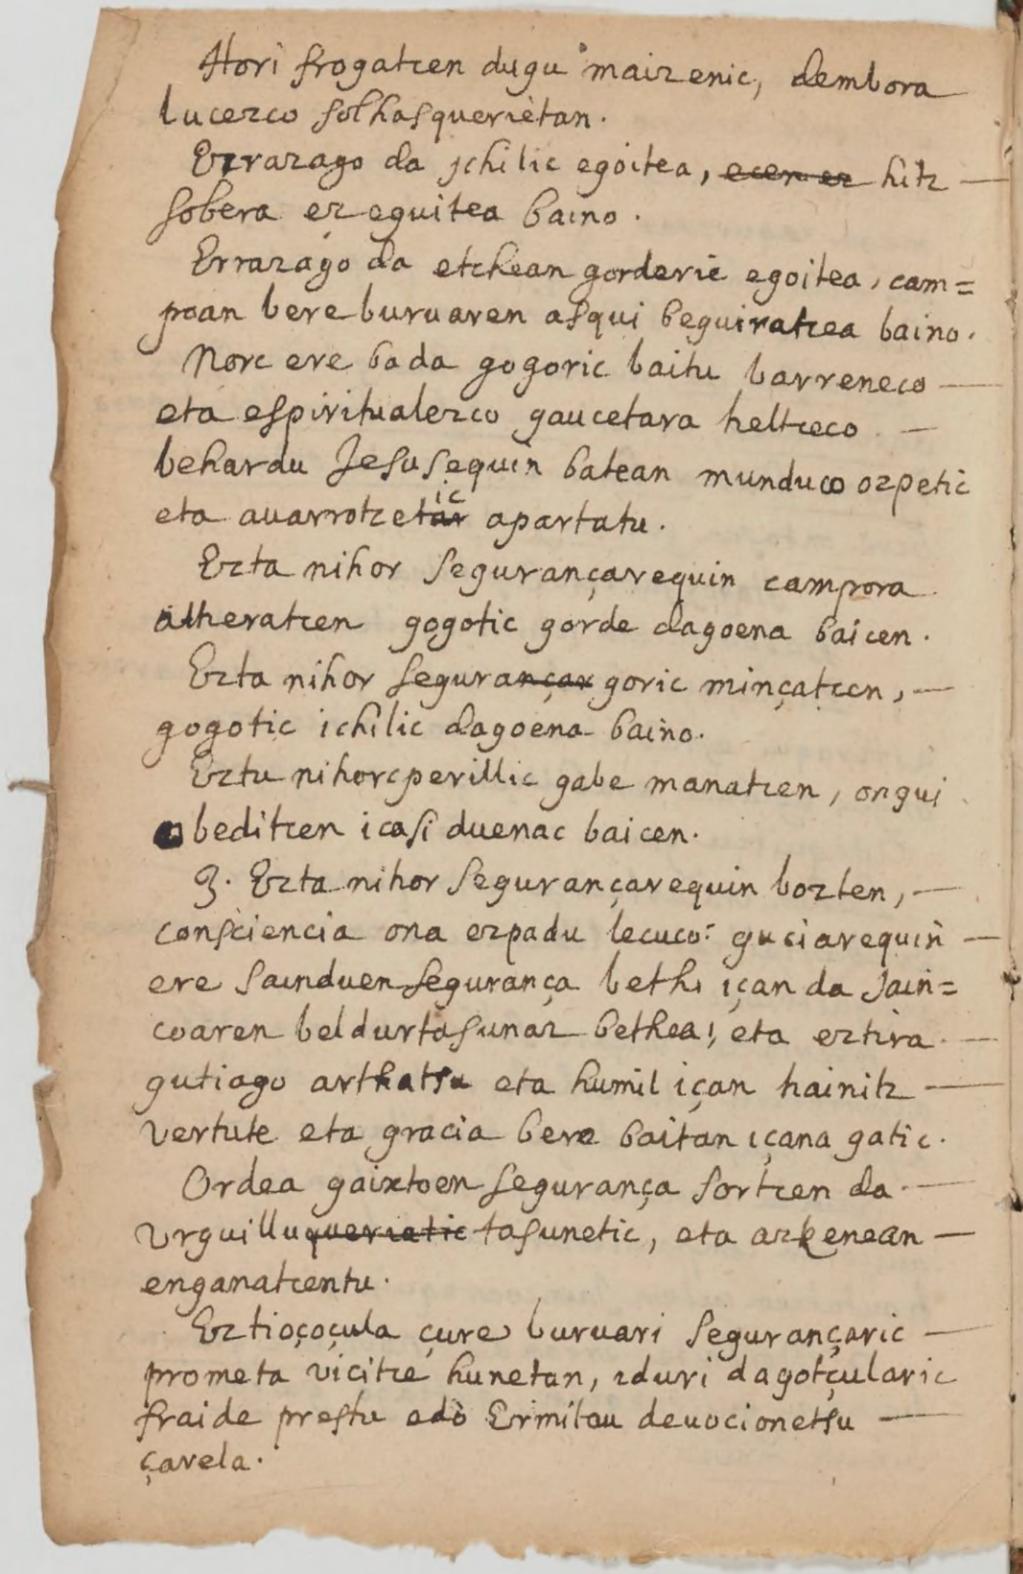 Hori frogatzen dugu maizenic, dembora
lucezco solhasquerietan.
Errazago da ichilic egoitea, ecen ez hitz
sobera ez eguitea baino.
Errazago da etchean gorderic egoitea, cam=
poan bere buruaren asqui beguiratzea baino.
Norc ere bada gogoric baitu barreneco
eta espiritualezco gaucetara heltceco
behardu Jesusequin batean munduco ozpetic
eta auarrotzetar ic apartatu.
Ezta nihor segurançarequin campora
atheratzen gogotic gorde dagoena baicen.
Ezta nihor segurançar goric minçatcen,
gogotic ichilic dagoena baino.
Eztu nihorc perillic gabe manatzen, ongui
obeditzen icasi duenac baicen.
3. Ezta nihor segurançarequin bozten,
consciencia ona ezpadu lecuco: guciarequin
ere sainduen segurança bethi içan da Jain=
coaren beldurtasunaz bethea; eta eztira
gutiago arthatsu eta humil içan hainitz
vertute eta gracia bere baitan içana gatic.
Ordea gaixtoen segurança sortzen da
urguilluqueriatic tasunetic, eta azkenean
enganatzentu.
Eztioçoçula çure buruari segurançaric
prometa vicitze hunetan, iduri dagotçularic
fraide prestu edo Ermitau deuocionetsu
çarela.